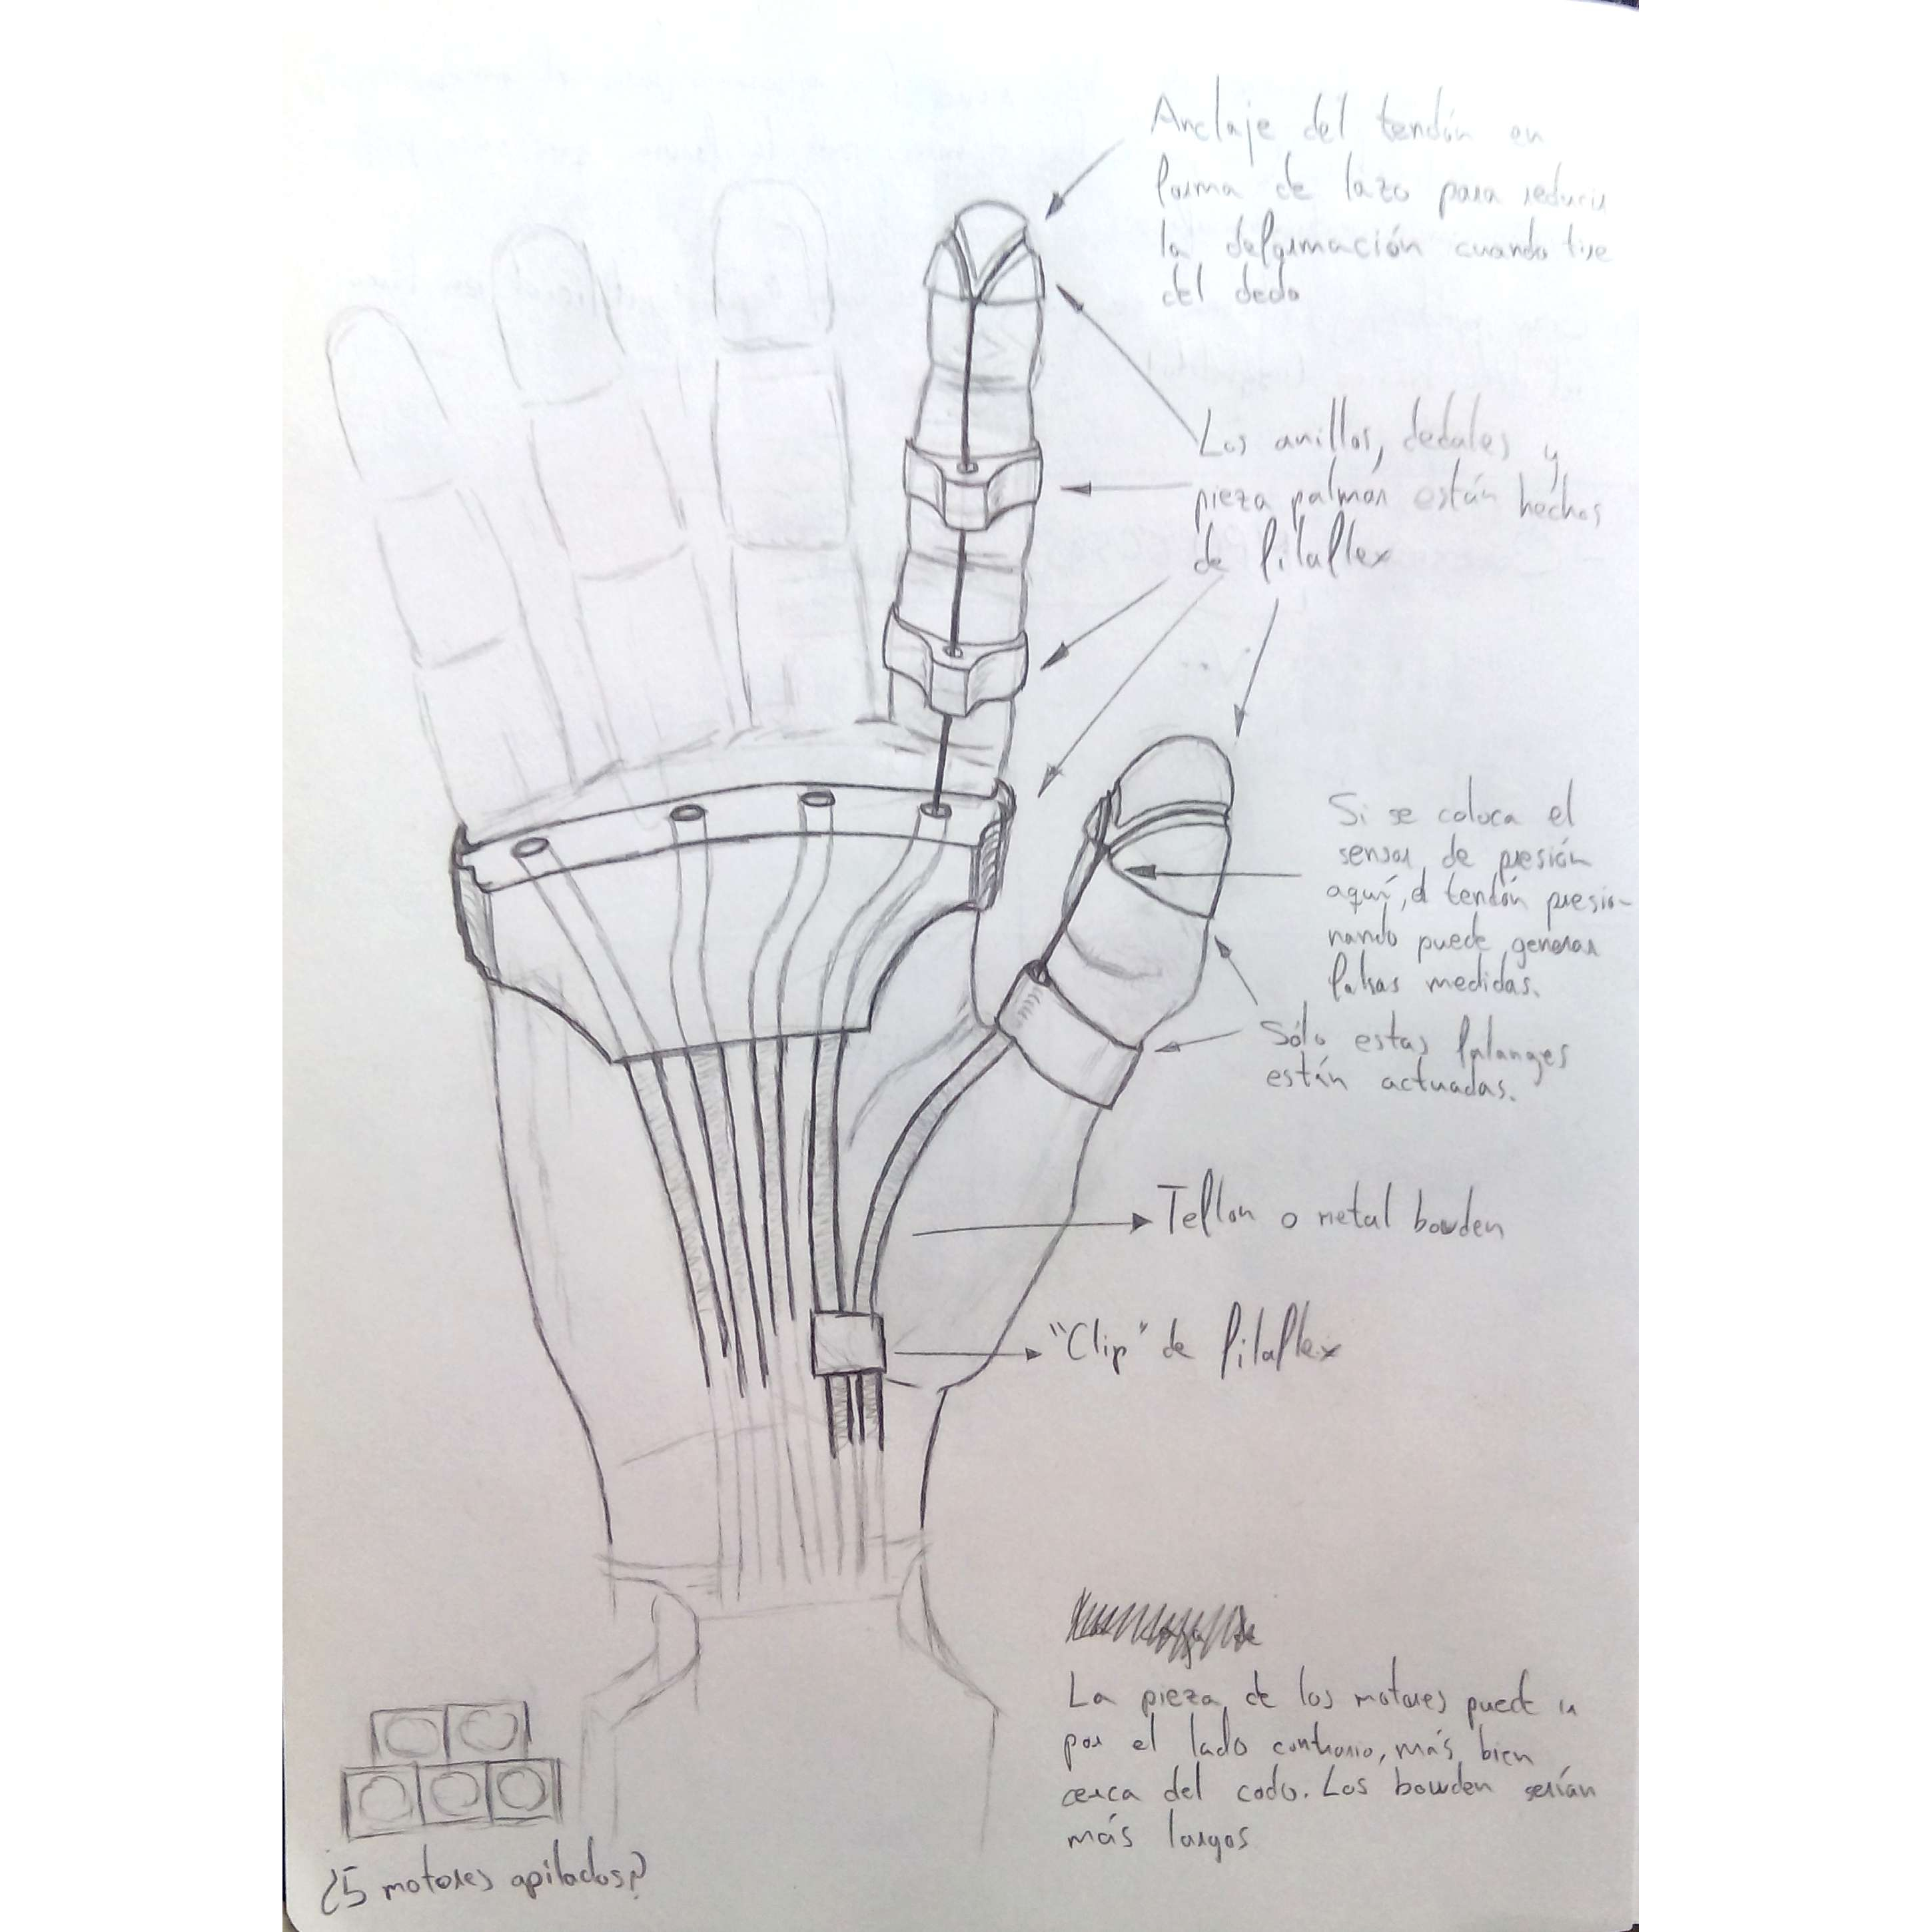 Anclaje del tendón en
forma de lazo para reducir
la deformación cuando tire
del dedo
Los anillos, dedales y
pieza palmar están hechos
de filaflex
Si se coloca el
sensor de presión
aquí, el tendón presio-
nando puede generar
falsas medidas.
Sólo estas falanges
están actuadas.
Teflon o metal bowden
"Clip" de filaflex
La pieza de los motores puede ir
por el lado contrario, más bien
cerca del codo. Los bowden serían
más largos
¿5 motores apilados?